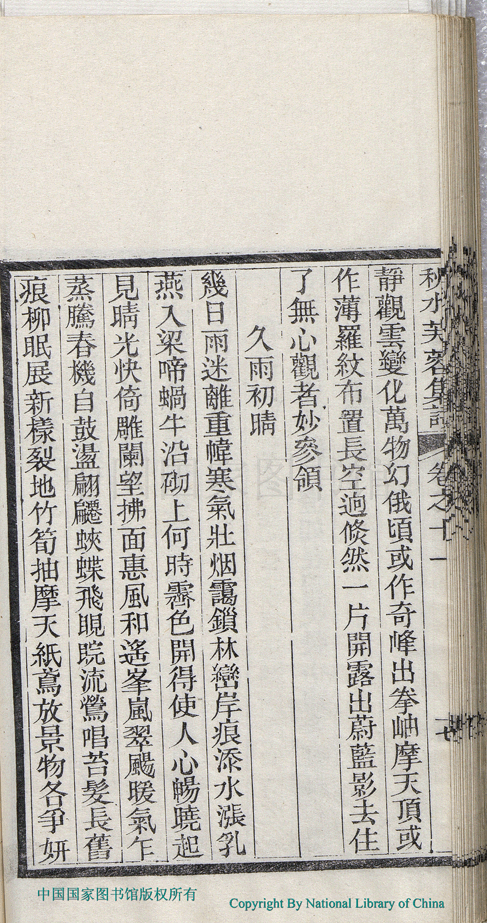 秋水芙蓉集詩 卷之十一
靜觀雲變化萬物幻俄頃或作奇峰出拳岫摩天頂或
作薄羅紋布置長空逈倐然一片開露出蔚藍影去住
了無心觀者妙參領
久雨初晴
幾日雨迷離重幃寒氣壯烟靄鎖林巒岸痕添水漲乳
燕入梁啼蝸牛沿砌上何時霽色開得使人心暢曉起
見晴光快倚雕闌望拂面惠風和遙峯嵐翠颺暖氣乍
蒸騰春機自鼓盪翩韆蛺蝶飛睍睆流鶯唱苔髮長舊
痕柳眠展新樣裂地竹筍抽摩天紙鳶放景物各爭妍
中国国家图书馆版权所有
Copyright By National Library of China